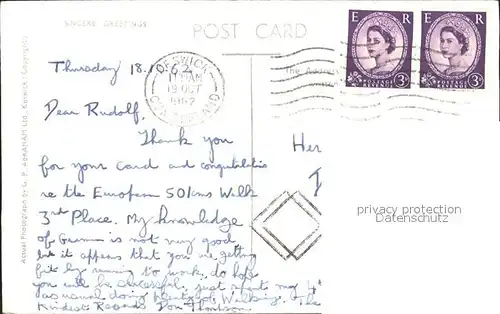 SINCERE GREETINGS
POST CARD
Thursday 18.10.62
KESWICK
AM
19 OCT
1962
CUMBERLAND
E R
E R
POSTAGE REVENUE
3D
POSTAGE REVENUE
3D
The Address
written
Dear Rudolf,
Thank you
for your card and congratulations
re the European 50kms Walk
3rd Place. My knowledge
of German is not very good
but it appears that you are getting
fit by running to work, do hope
you will be successful, just spent my
as usual doing plenty of Walking. The
Kindest Regards Don Thompson.
Her
Actual Photograph by G. P. ABRAHAM Ltd., Keswick. (Copyright)
privacy protection
Datenschutz